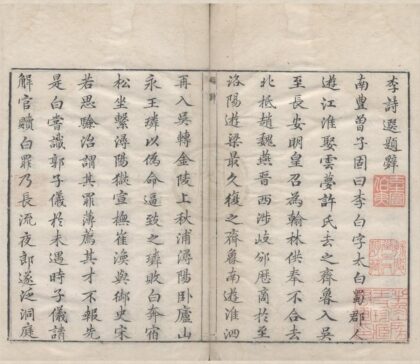 李詩選題辭
南豐曾子固曰李白字太白蜀郡人
遊江淮娶雲夢許氏去之齊魯入吳
至長安明皇召為翰林供奉不合去
北抵趙魏燕晉西涉岐邠歷商於至
洛陽遊梁最久復之齊魯南遊淮泗
再入吳轉金陵上秋浦潯陽卧廬山
永王璘以偽命逼致之璘敗白奔宿
松坐繫潯陽獄宣撫崔渙與御史宋
若思驗治謂其罪薄薦其才不報先
是白嘗識郭子儀於未遇時子儀請
解官贖白罪乃長流夜郎遂泛洞庭